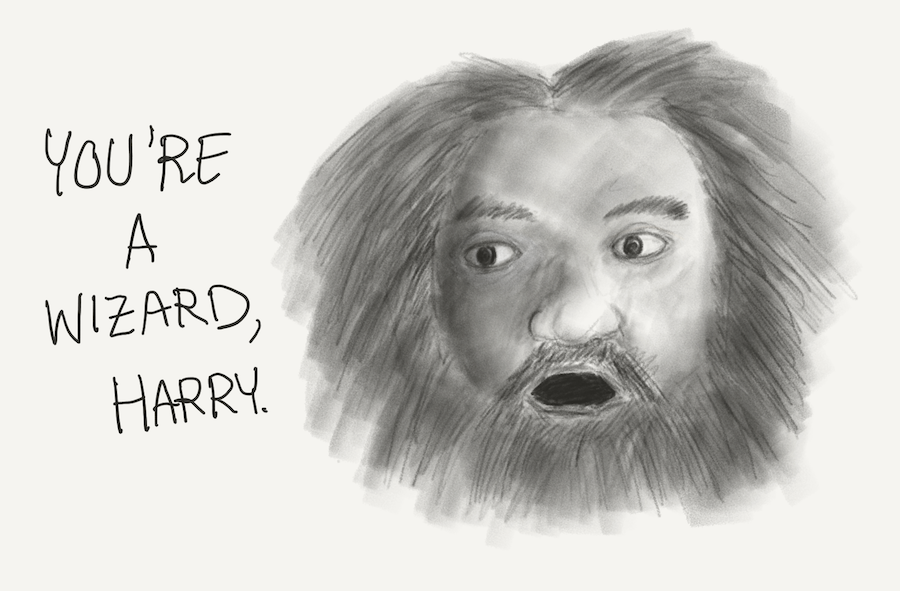 YOU'RE
A
WIZARD,
HARRY.